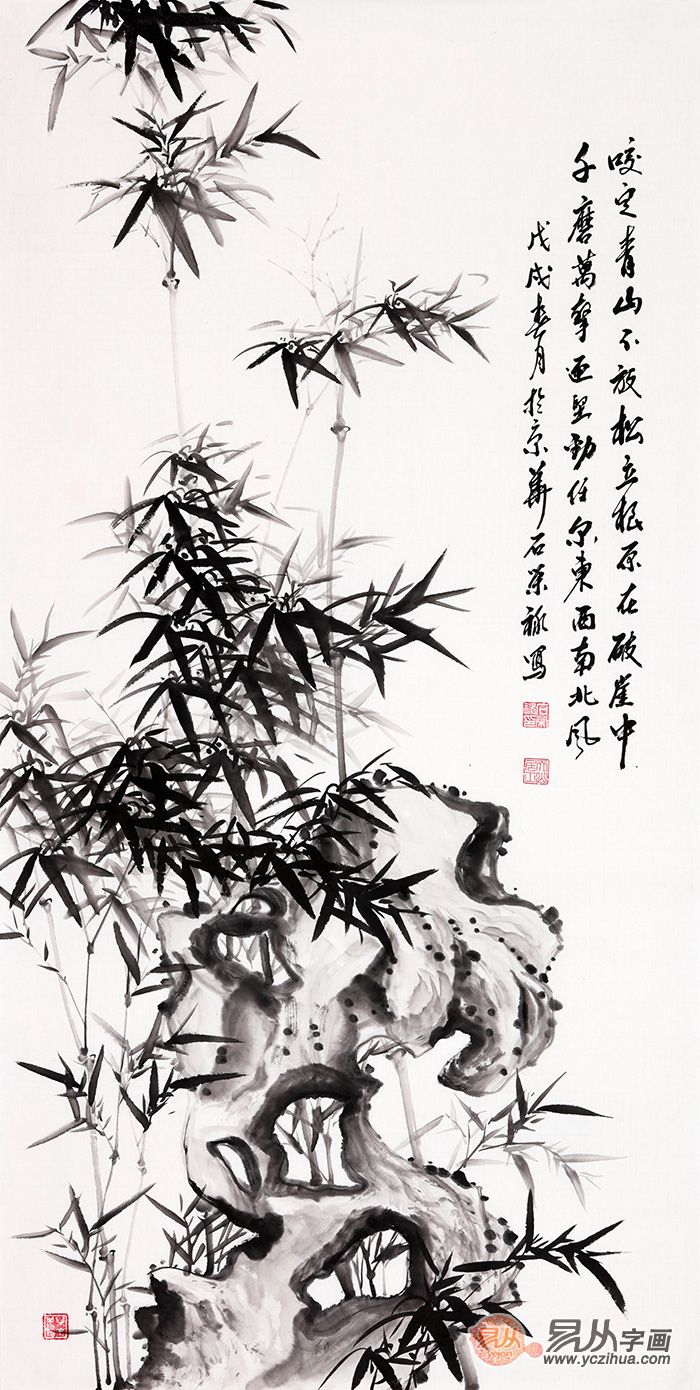 咬定青山不放松立根原在破崖中
千磨萬擊还坚劲任尔東西南北风
戊戌春月於京華石荣禄写
易从
易从字画
www.yczihua.com